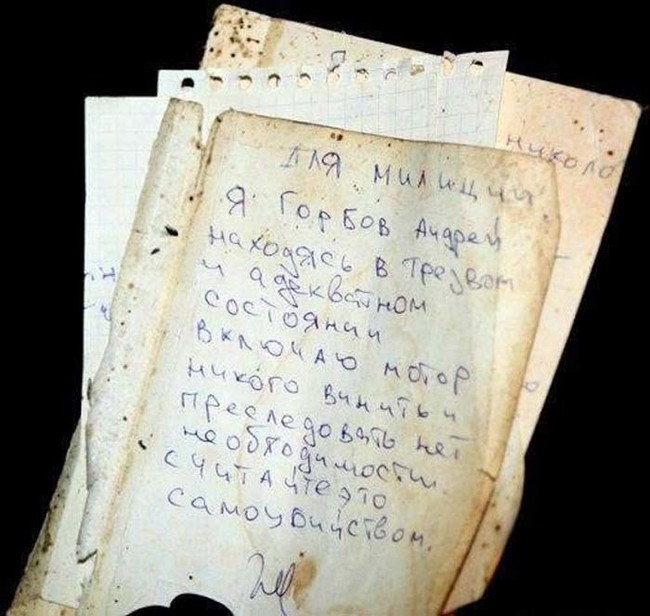 николо
Для милиции.
Я Горбов Андрей
находясь в трезвом
и адекватном
состоянии
включаю мотор
никого винить и
преследовать нет
необходимости.
считайте это
самоубийством.